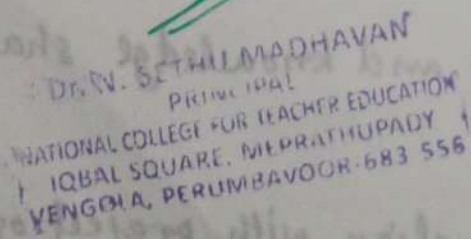 Dr. P.V. SETHU MADHAVAN
PRINCIPAL
NATIONAL COLLEGE FOR TEACHER EDUCATION
IQBAL SQUARE, MEPRATHUPADY
VENGOLA, PERUMBAVOOR-683 556